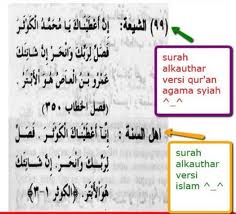 (٩٩) الشيعة: إِنَّا أَعْطَيْنَاكَ يَا مُحَمَّدُ الْكَوْثَرَ
فَصَلِّ لِرَبِّكَ وَانْحَرْ. إِنَّ شَانِئَكَ
عَمْرَو بْنَ الْعَاصِ هُوَ الْأَبْتَرُ.
(فصل الخطاب ٣٥٠)
surah
alkauthar
versi qur'an
agama syiah
^_^
اهل السنة : إِنَّا أَعْطَيْنَاكَ الْكَوْثَرَ. فَصَلِّ
لِرَبِّكَ وَانْحَرْ. إِنَّ شَانِئَكَ
هُوَ الْأَبْتَرُ. (الكوثر ١-٣)
surah
alkauthar
versi
islam ^_^